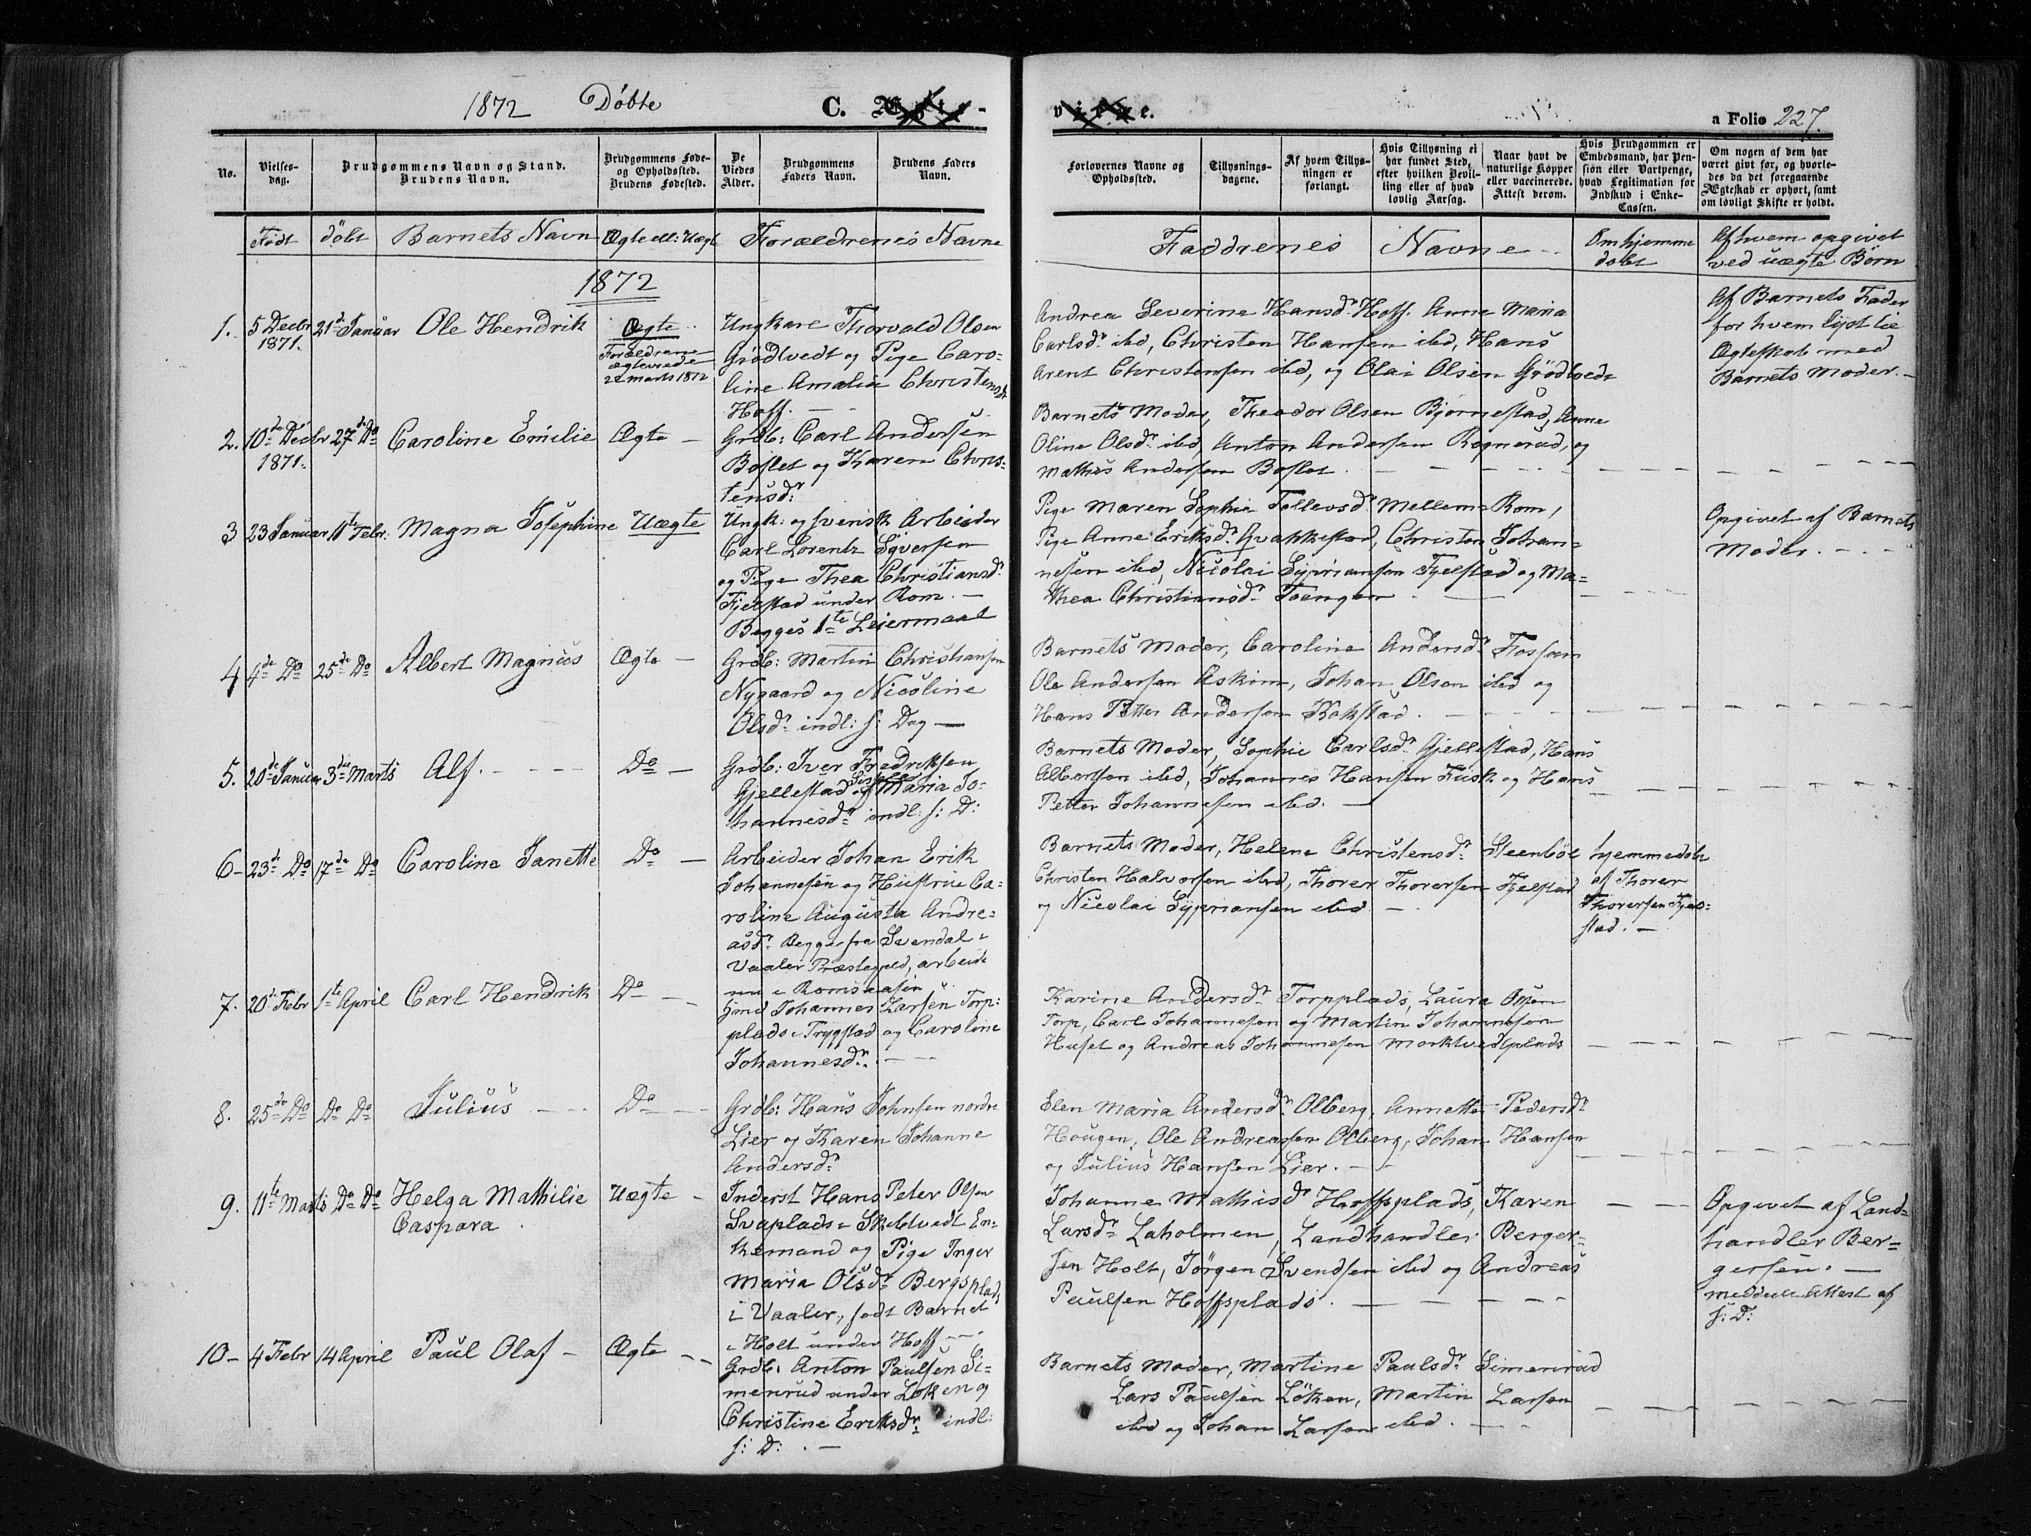 1872 Döbte C. Ægte-
vie e. a Folio 227.
No. Vielses-dag. Brudgommens Navn og Stand. Brudens Navn. Brudgommens Føde- og Opholdssted. Brudens Fødested. De Viedes Alder. Brudgommens Faders Navn. Brudens Faders Navn.
Forlovernes Navne og Opholdssted. Tillysnings-dagene. Af hvem Tillysningen er forlangt. Hvis Tillysning ei har fundet Sted, efter hvilken Bevilling eller af hvad lovlig Aarsag. Naar havt de naturlige Kopper eller vaccinerede. Attest derom. Hvis Brudgommen er Embedsmand, har Pension eller Vartpenge, hvad Legitimation for Indskud i Enke-Cassen. Om nogen af dem har været gift før, og hvorledes da det foregaaende Ægteskab er ophørt, samt om lovligt Skifte er holdt.
Født döbt Barnets Navn Ægte ell: Uægt Forældrenes Navne
Faddrenes Navne - Om hjemme döbt Af hvem opgivet ved uægte Børn
1872
1. 5 Decbr 1871. 21de Januar Ole Hendrik Ægte
Forældrene ægteviede 22 Marts 1872
Ungkarl Thorvald Olsen
Grödtvedt og Pige Caro-
line Amalia Christensdr
Hoff. - -
Andrea Severine Hansdr Hoff. Anne Maria
Carlsdr ibd, Christen Hansen ibd, Hans
Arent Christensen ibd, og Olai Olsen Grödtvedt
Af Barnets Fader
for hvem lyst til
Ægteskab med
Barnets Moder. -
2. 10de Decbr 1871. 27de Do Caroline Emilie Ægte -
Grdb: Carl Andersen
Boslet og Karen Chris-
tensdr
Barnets Moder, Theodor Olsen Bjørnestad, Anne
Oline Olsdr ibd, Anton Andersen Rognerud, og
Mathis Andersen Boslet. - - -
3 23 Januar 11te Febr: Magna Josephine Uægte
Ungk: og svensk Arbeider
Carl Lorentz Syversen
og Pige Thea Christiansdr
Fjelstad under Rom. -
Begges 1te Leiermaal
Pige Maren Sophie Tollevsd. Mellem Rom,
Pige Anne Eriksdr Qvakkestad, Christen Johan-
nesen ibd, Nicolai Syprianssen Fjelstad og Ma-
thea Christiansdr Toengen
Opgivet af Barnets
Moder. - - -
4 4de Do 25de Do Albert Magnus Ægte -
Grdb: Martin Christiansen
Nygaard og Nicoline
Olsdr indl: s: Dag -
Barnets Moder, Caroline Andersdr Fossum
Ole Andersen Askim, Johan Olsen ibd og
Hans Petter Andersen Kokstad.
5. 20de Januar 3die Marts Alf. - - - Do -
Grdb: Iver Fredriksen
Gjellestad og Maria Jo-
hannesdr indl: s: D:
Barnets Moder, Sophie Carlsdr Gjellestad, Hans
Albertsen ibd, Johannes Hansen Fusk og Hans
Petter Johannesen ibd. -
6- 23de Do 17de Do Caroline Janette Do -
Arbeider Johan Erik
Johannesen og Hustrue Ca-
roline Augusta Andre-
asdr Begge fra Svendal i
Vaaler Præstegjeld, arbeide
nu i Romsaasen
Barnets Moder, Helene Christensdr Steenböl
Christen Halvorsen ibd, Thorer Thorersen Fjelstad
og Nicolai Syprianssen ibd. -
hjemmedöbt
af Thorer
Thorersen Fjel-
stad. -
7. 20de Febr 1te April Carl Hendrik Do -
Johannes Larsen Torp-
plads i Trygstad og Caroline
Johannesdr. - -
Karine Andersdr Torpplads, Laura Olsen
Torp, Carl Johannesen og Martin Johannesen
Huset og Andreas Johannesen Morktvedtplads
8. 25de Do Do Do Julius - - - Do -
Grdb: Hans Johnsen nordre
Lier og Karen Johanne
Andersdr
Elen Maria Andersdr Olberg, Annette Pedersdr
Hougen, Ole Andreassen Olberg, Johan Hansen
og Julius Hansen Lier. - -
9. 11te Marts Do Do Helga Mathilie
Caspara
Uægte -
Inderst Hans Peter Olsen
Svaplads i Skibtvedt En-
kemand og Pige Inger
Maria Olsdr Bergsplads
i Vaaler, født Barnet
i Holt under Hoff -
Johanne Mathisdr Hoffsplads, Karen
Larsdr Laholmen, Landhandler Berger-
sen Holt, Jørgen Svendsen ibd og Andreas
Paulsen Hoffsplads. - - -
Opgivet af Land-
handler Ber-
gersen. -
meddelt Attest af
s: D:
10- 4 Febr 14 April Paul Olaf - Ægte -
Grdb: Anton Paulsen Si-
menrud under Löken og
Christine Eriksdr indl:
s: D: . -
Barnets Moder, Martine Paulsdr Simenrud
Lars Paulsen Löken, Martin Larsen
ibd og Johan Larsen ibd. - -